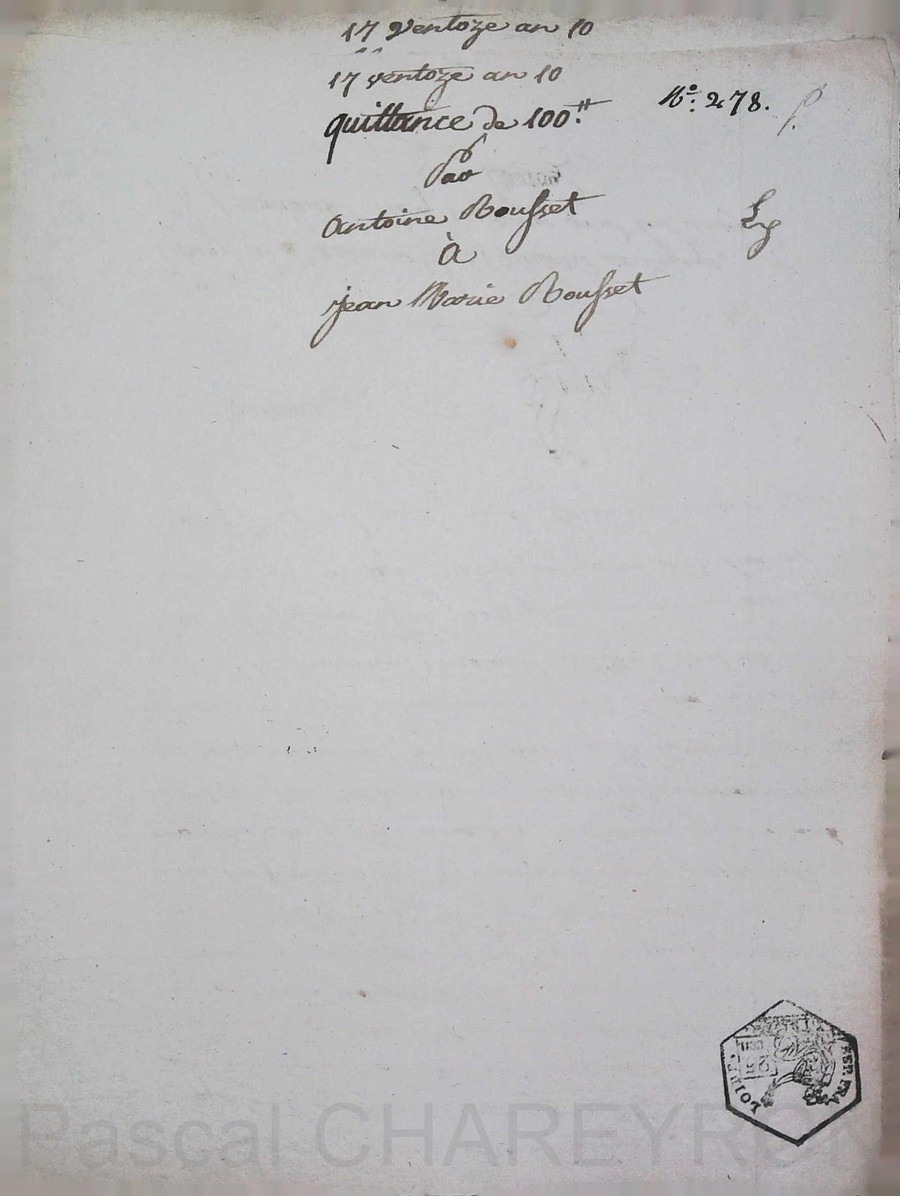 17 Ventoze an 10
17 ventoze an 10
quittance de 100.ᵗᵗ
N.º 278.
Par
Antoine Rousset
à
jean Marie Rousset
25
REP. FRA
Pascal CHAREYRON